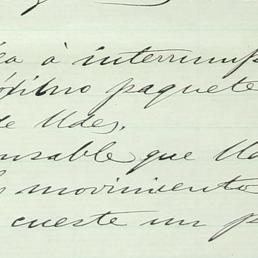 à interrump
paquete
de Udes.
nsable que Ud
movimiento
cueste un p